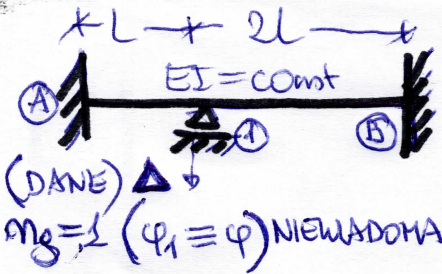 L 2L
EI = const
A 1 B
(DANE) Δ
ng = 1 (φ₁ ≡ φ) NIEWIADOMA